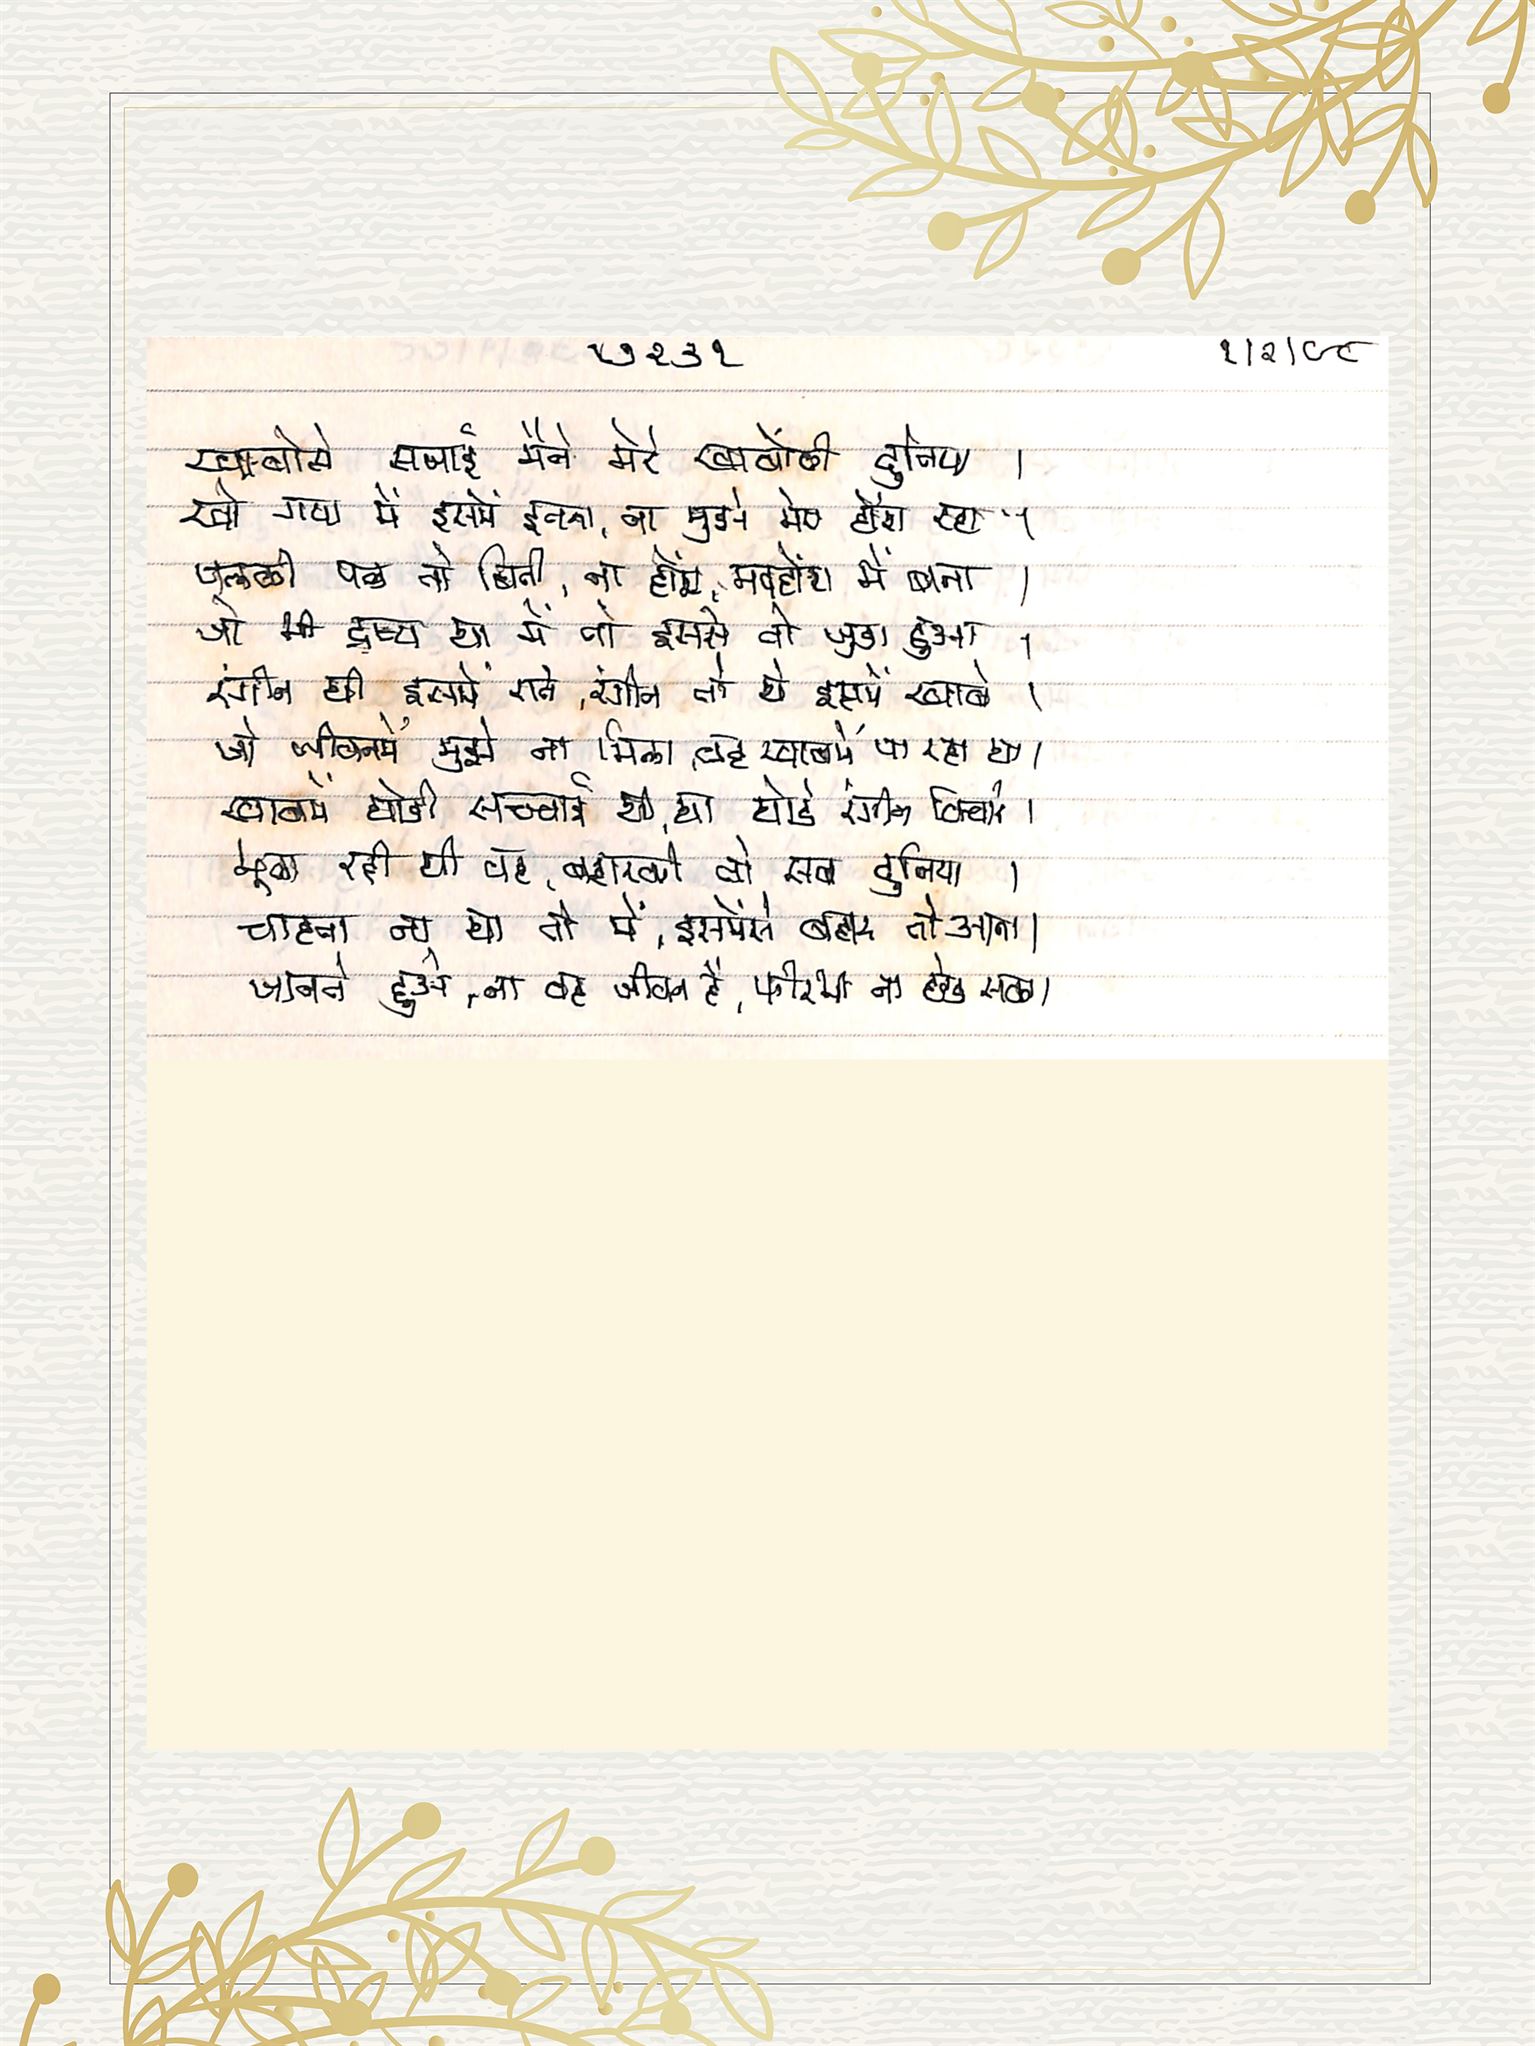 ५७२३१ १/२/९८
ख्वाबोसे सजाई मैने मेरे ख्वाबोंकी दुनिया ।
खो गया मैं इसमें इतना, ना मुझे मेरा होंश रहा ।
पलकी पल तो बिती, ना होंश, मदहोंश मैं बना ।
जो भी द्रष्य था में वो इससे वो जुडा हुआ ।
रंगीन थी इसमें राते, रंगीन तो थे इसमें ख्वाबे ।
जो जीवनमें मुझे ना मिला, वह ख्वाबमें पा रहा था ।
ख्वाबमें थोडी सच्चाई थी, था थोडे रंगीन विचार ।
भूला रही थी वह, बहारकी वो सब दुनिया ।
चाहता ना था तो में, इसमेंसे बहार तो आना ।
जानते हुओ, ना वह जीवन है, फीरभी ना छोड सका ।